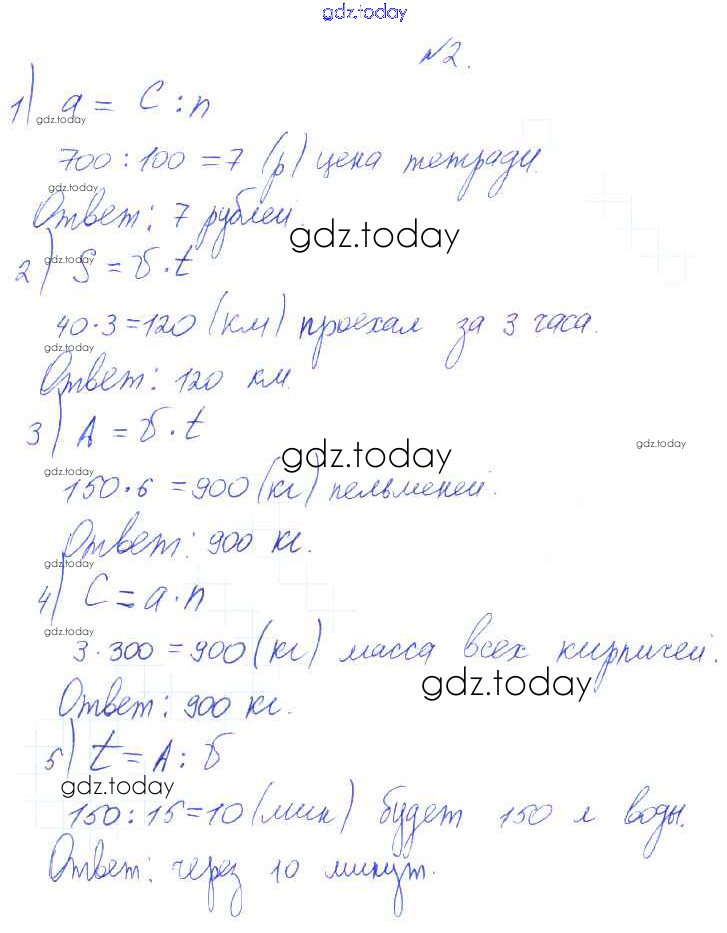 gdz.today
№2.
1) a = C : n
gdz.today
700 : 100 = 7 (р) цена тетради.
gdz.today
Ответ: 7 рублей.
gdz.today
2) S = v · t
gdz.today
40 · 3 = 120 (км) проехал за 3 часа.
gdz.today
Ответ: 120 км.
3) A = v · t
gdz.today
gdz.today
gdz.today
150 · 6 = 900 (кг) пельменей.
Ответ: 900 кг.
gdz.today
4) C = a · n
gdz.today
3 · 300 = 900 (кг) масса всех кирпичей.
gdz.today
Ответ: 900 кг.
5) t = A : v
gdz.today
150 : 15 = 10 (мин) будет 150 л воды.
Ответ: через 10 минут.